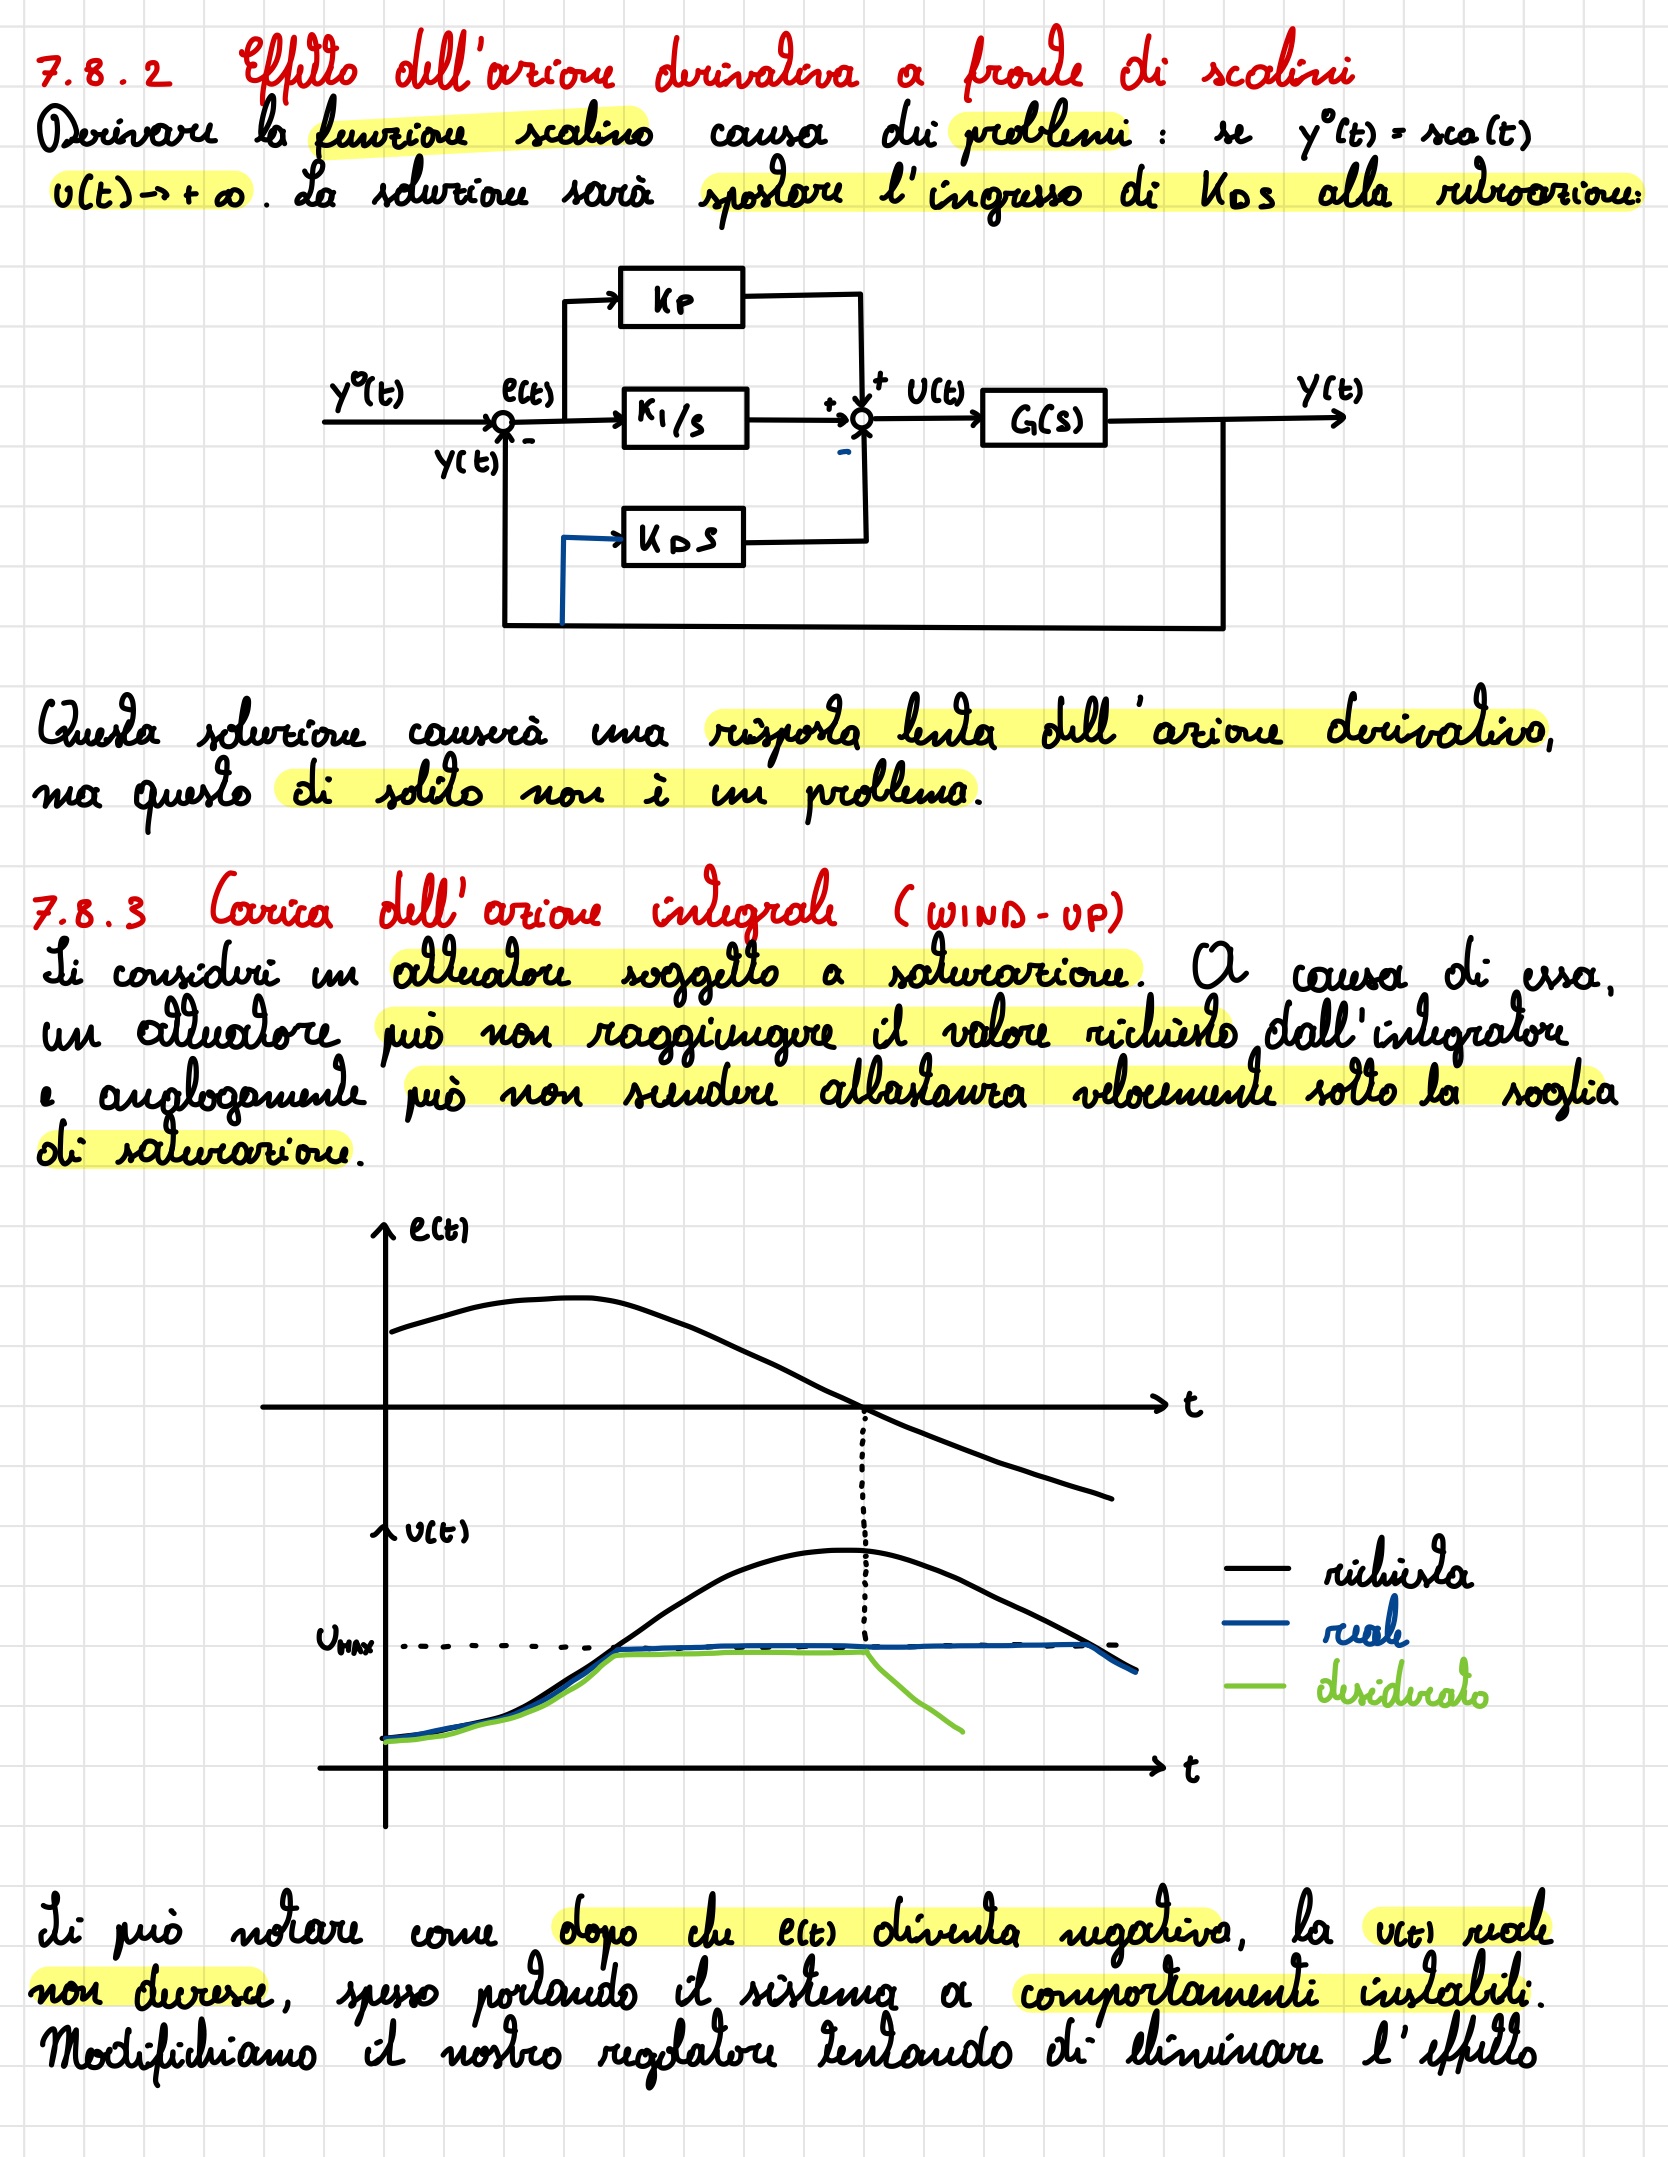 7.8.2 Effetto dell'azione derivativa a fronte di scalini
Derivare la funzione scalino causa dei problemi : se y°(t) = sca(t)
u(t) → + ∞ . La soluzione sarà spostare l'ingresso di KDS alla retroazione:
KP
y°(t) e(t) KI/S + + U(t) G(S) Y(t)
Y(t) - -
KDS
Questa soluzione causerà una risposta lenta dell'azione derivativa,
ma questo di solito non è un problema.
7.8.3 Carica dell'azione integrale (WIND-UP)
Si consideri un attuatore soggetto a saturazione. A causa di essa,
un attuatore può non raggiungere il valore richiesto dall'integratore
e analogamente può non scendere abbastanza velocemente sotto la soglia
di saturazione.
e(t)
t
U(t)
richiesta
UMAX
reale
desiderato
t
Si può notare come dopo che e(t) diventa negativa, la u(t) reale
non decresce, spesso portando il sistema a comportamenti instabili.
Modifichiamo il nostro regolatore tentando di eliminare l'effetto